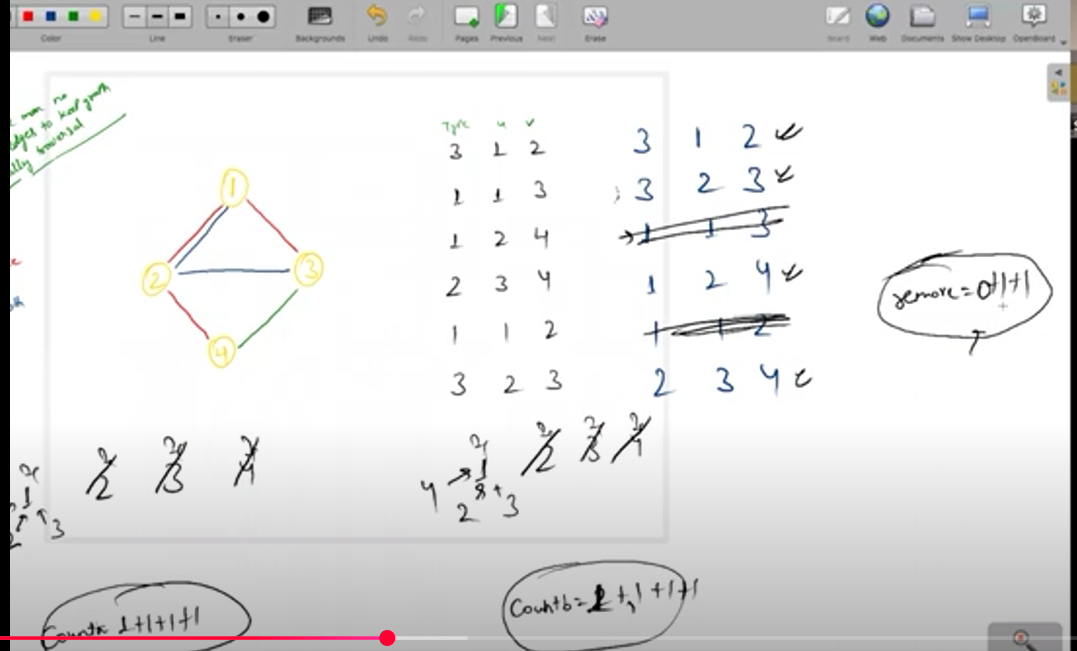 Color Line Eraser Backgrounds Undo Redo Pages Previous Next Erase Board Web Documents Show Desktop OpenBoard
max no
edges to keep graph
fully traversal
Type u v
3 1 2
1 1 3
1 2 4
2 3 4
1 1 2
3 2 3
3 1 2
3 2 3
1 1 3
1 2 4
1 1 2
2 3 4
remove=0+1+1
1
2
3
4
1 2 3 4
2 3
1 2 3 4
4 2 3
Count= 1+1+1+1
Countb= 1+1+1+1